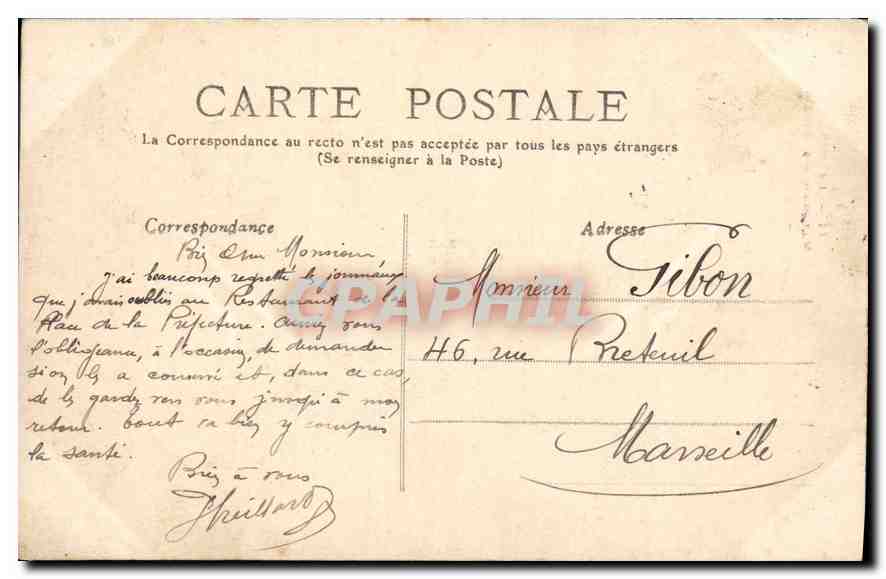 CARTE POSTALE
La Correspondance au recto n'est pas acceptée par tous les pays étrangers
(Se renseigner à la Poste)
Correspondance
Adresse
Monsieur
J'ai beaucoup regretté les journaux
que j'avais oubliés au Restaurant de la
Place de la Préfecture. Auriez vous
l'obligeance, à l'occasion, de demander
si on les a conservé et, dans ce cas,
de les garder vers vous jusqu'à mon
retour. Tout va bien y compris
la santé.
Bien à vous
Monsieur Gibon
46, rue Breteuil
Marseille
CPAPHIL